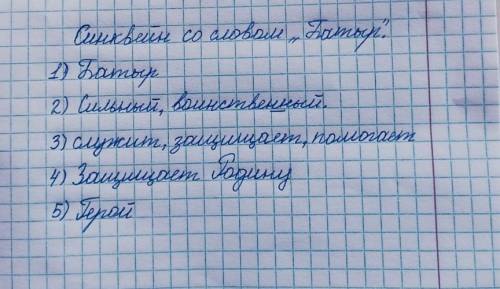 Синквейн со словом „Батыр".
1) Батыр
2) Сильный, воинственный.
3) служит, защищает, помогает
4) Защищает Родину
5) Герой